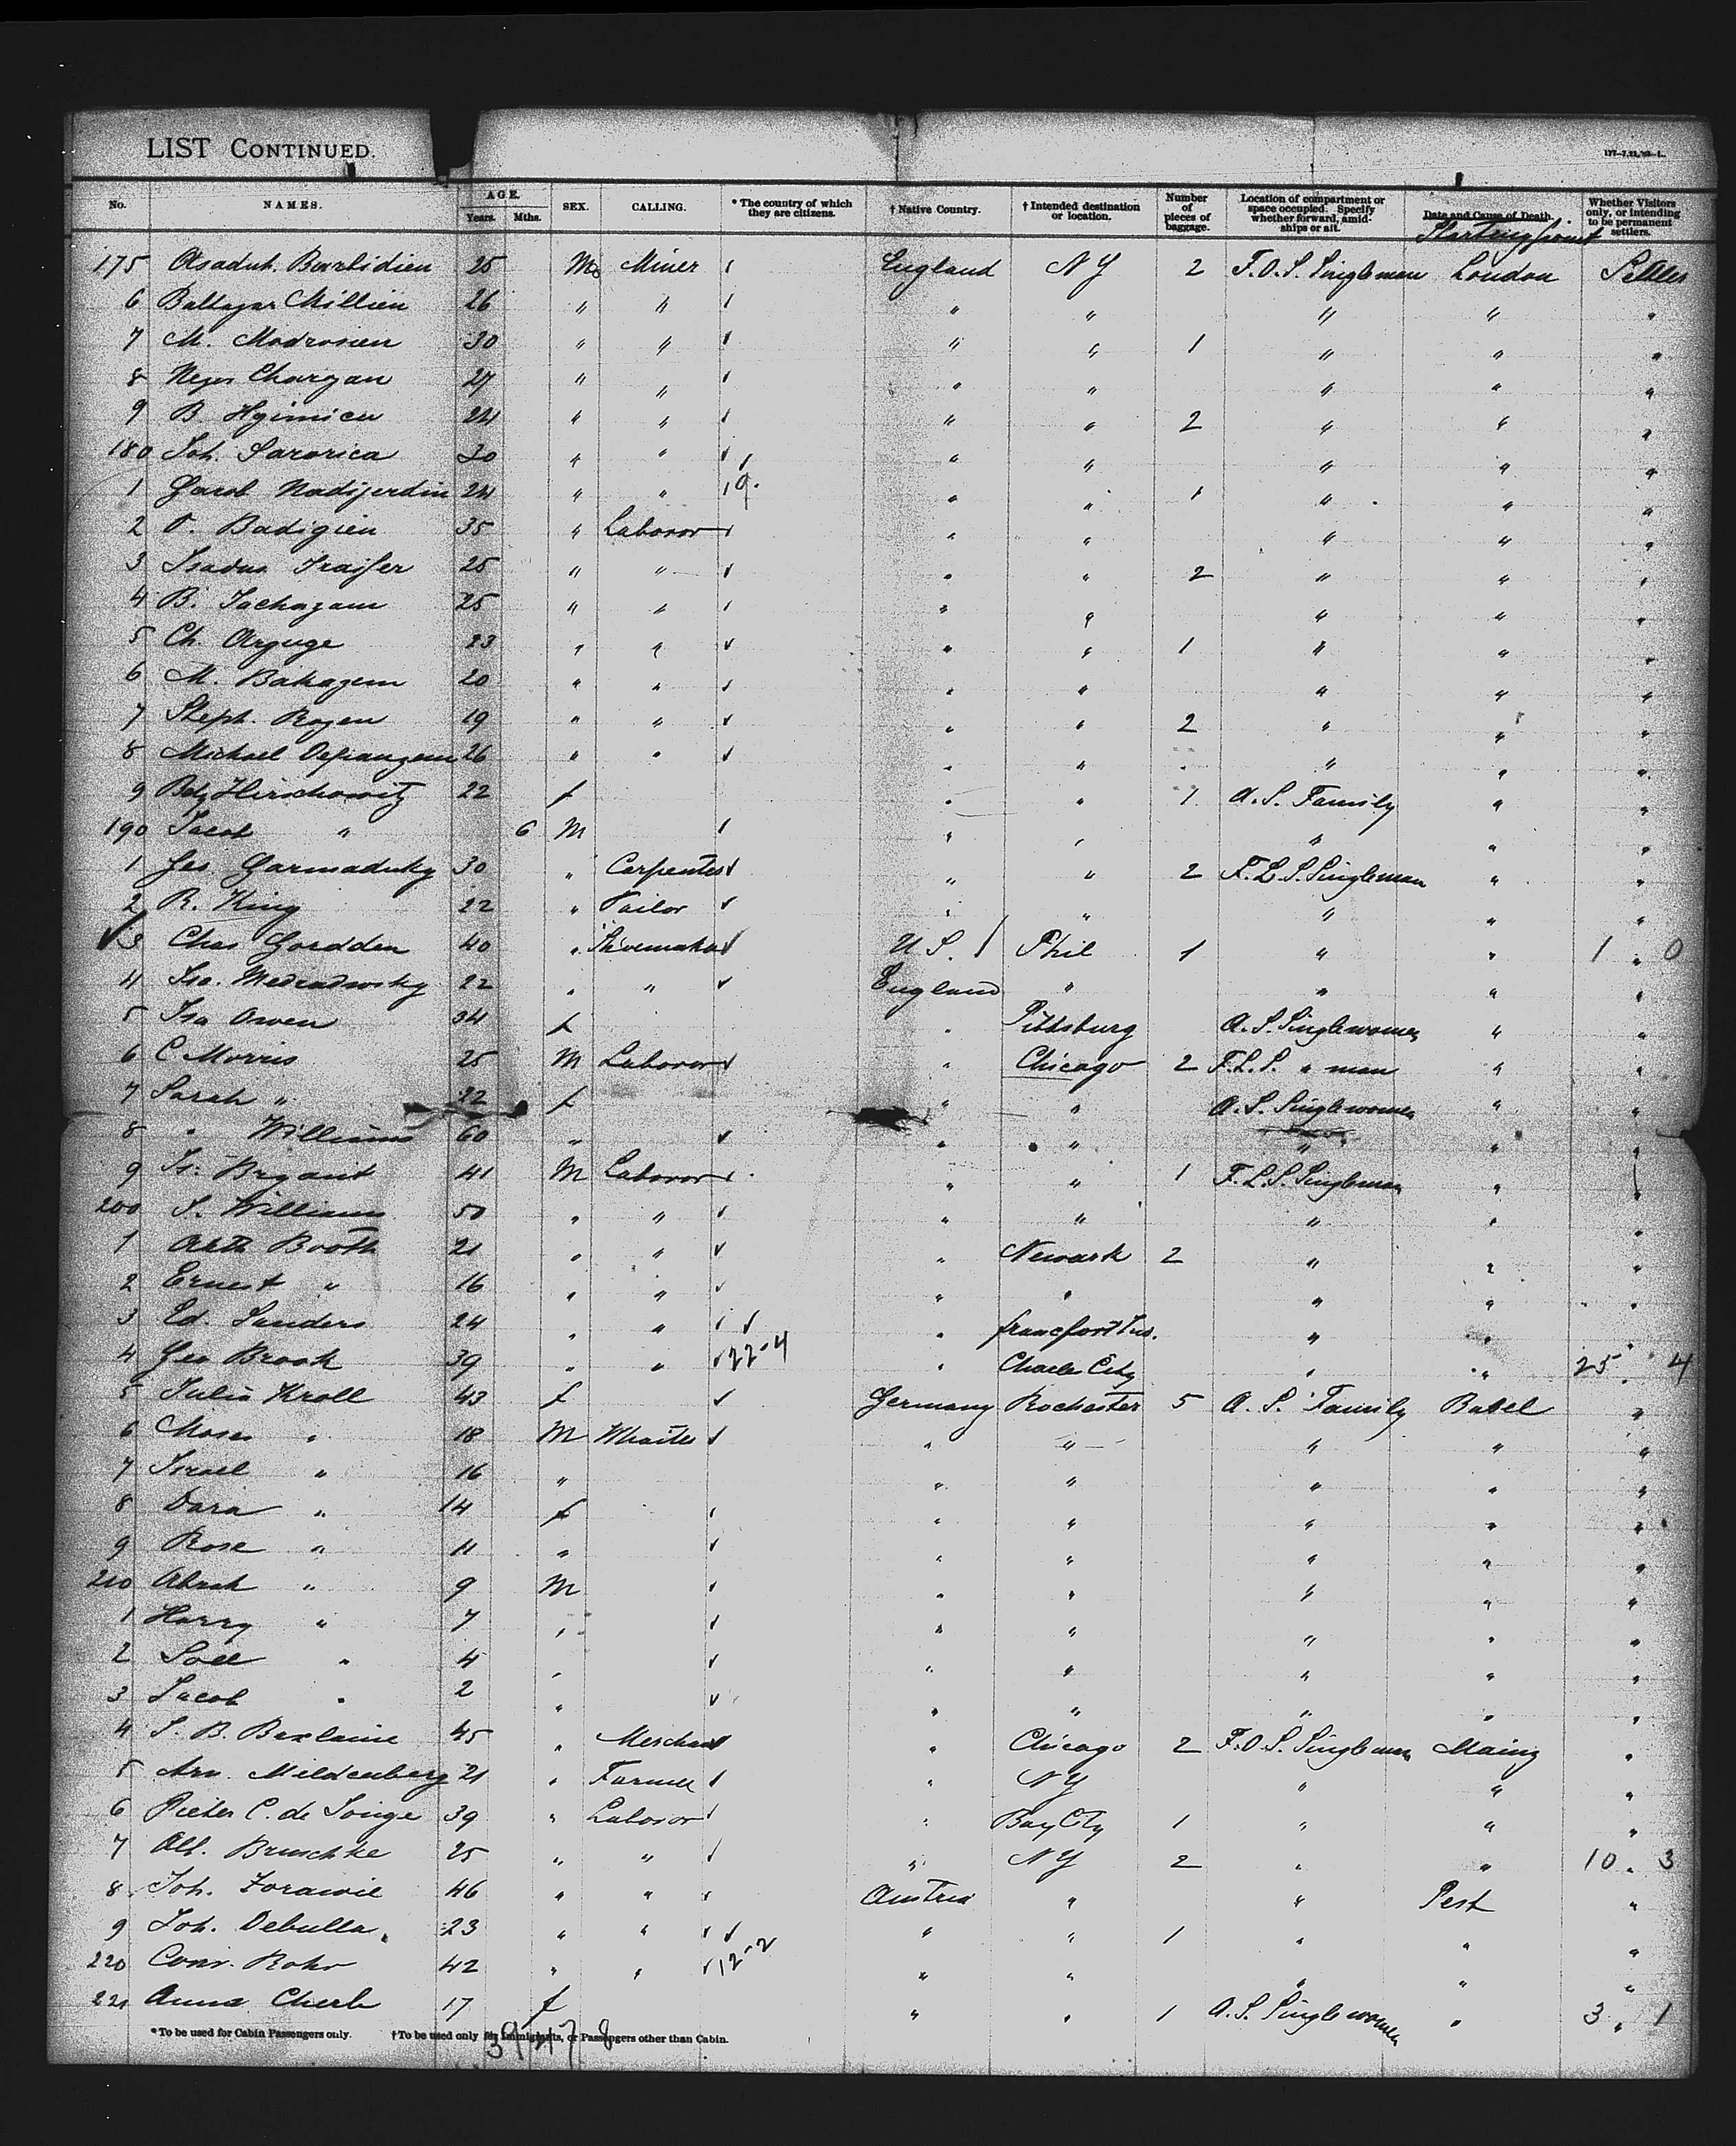 LIST CONTINUED.
No. NAMES. AGE. Years. Mths. SEX. CALLING. * The country of which they are citizens. † Native Country. † Intended destination or location. Number of pieces of baggage. Location of compartment or space occupied. Specify whether forward, amidships or aft. Date and Cause of Death. Whether Visitors only, or intending to be permanent settlers.
Starting from
175 25 M Miner England NY 2 F.O.S. Singlemen London Settler
6 Baltazar Millien 26 " " " " " " "
7 M. Modrosien 30 " " " " 1 " " "
8 Neger Chargan 27 " " " " " " "
9 B. 24 " " " " 2 " " "
180 Joh. Sarorica 30 " " " " " " "
1 Jacob Nadijerdin 24 " " 9. " " 1 " " "
2 Badigien 35 " Laboror " " " " "
3 Isadus 25 " " " " 2 " " "
4 B. Tachazam 25 " " " " " " "
5 Ch. 23 " " " " 1 " " "
6 M. Bahagem 20 " " " " " " "
7 Steph. Rogen 19 " " " " 2 " " "
8 Michael 26 " " " " " " "
9 Hirschowitz 22 f " " 1 A.S. Family " "
190 Jacob " 6 M " " " " "
1 Jes. Garmaduky 30 " Carpenter " " 2 F.L.S. Singleman " "
2 R. King 22 " Tailor " " " " "
3 Chas Gordden 40 " Shoemaker U S. Phil 1 " " 1 " 0
4 Isa. 22 " " England " " " "
5 Isa Owen 34 f " Pittsburg A.S. Singlewomen " "
6 C Morris 25 M Laboror " Chicago 2 F.L.S. " man " "
7 Sarah " 22 f " " A.S. Singlewomen " "
8 " Williams 60 " " " " " "
9 Bryant 41 M Laboror " " 1 F.L.S. Singleman " "
200 S. Williams 50 " " " " " " "
1 Arth Booth 21 " " " Newark 2 " " "
2 Ernest " 16 " " " " " " "
3 Ed. Sanders 24 " " " francfort Ind. " " "
4 Geo Brook 39 " " 22-4 " Charles City " " 25 " 4
5 Julia Kroll 43 f Germany Rochester 5 A.S. Family Basel "
6 Moses " 18 M Whaiter " " " " "
7 Israel " 16 " " " " " "
8 Dora " 14 f " " " " "
9 Rose " 11 " " " " " "
210 Abrah " 9 M " " " " "
1 Harry " 7 " " " " " "
2 " 4 " " " " " "
3 Jacob " 2 " " " " " "
4 S. B. 45 " Merchant " Chicago 2 F.O.S. Singlemen Mainz "
5 Arn. Mildenberg 21 " Farmer " NY " " "
6 Pieter C. de Jonge 39 " Laboror " Bay City 1 " " "
7 Alb. Bruschke 25 " " " NY 2 " " 10 " 3
8 Joh. Zorawic 46 " " Austria " " Pest "
9 Joh. Debulla 23 " " " " 1 " " "
220 Conr. Rohr 42 " " 12-2 " " " " "
221 Anna Cherb 17 f " " 1 A.S. Singlewomen " 3 " 1
* To be used for Cabin Passengers only. † To be used only for Immigrants, or Passengers other than Cabin.